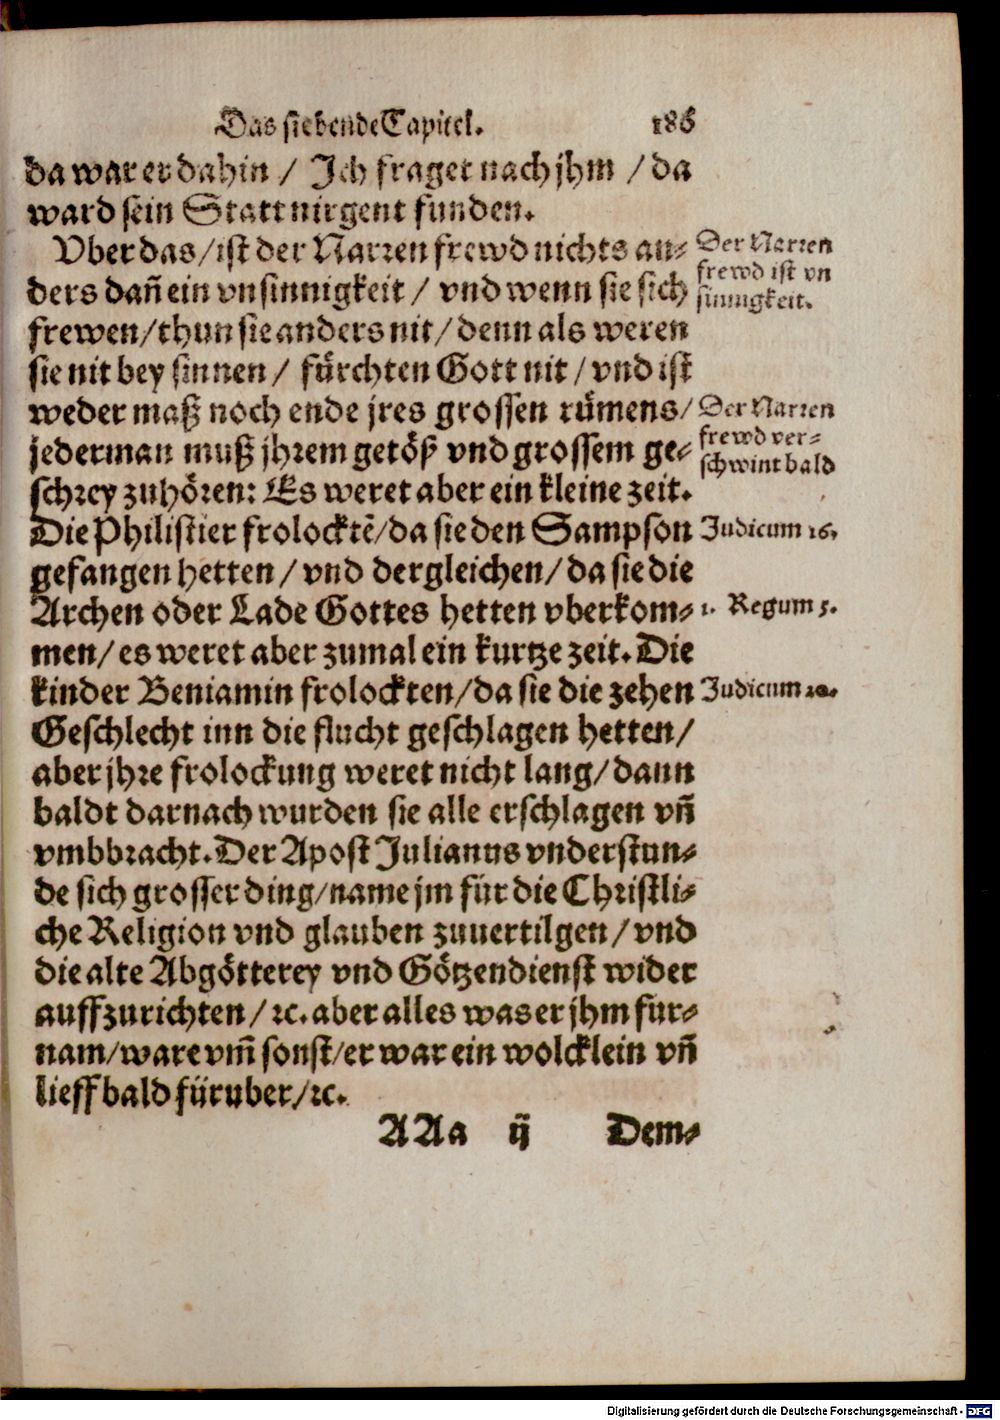 Das siebende Capitel. 186
da war er dahin / Ich fraget nach jhm / da
ward sein Statt nirgent funden.
Vber das / ist der Narren frewd nichts an-
ders dañ ein vnsinnigkeit / vnd wenn sie sich
frewen / thun sie anders nit / denn als weren
sie nit bey sinnen / fürchten Gott nit / vnd ist
weder maß noch ende jres grossen rümens /
jederman muß jhrem getöß vnd grossem ge-
schrey zuhören: Es weret aber ein kleine zeit.
Die Philistier frolocktē / da sie den Sampson
gefangen hetten / vnd dergleichen / da sie die
Archen oder Lade Gottes hetten vberkom-
men / es weret aber zumal ein kurtze zeit. Die
kinder Beniamin frolockten / da sie die zehen
Geschlecht inn die flucht geschlagen hetten /
aber jhre frolockung weret nicht lang / dann
baldt darnach wurden sie alle erschlagen vñ
vmbbracht. Der Apost Julianus vnderstun-
de sich grosser ding / name jm für die Christli-
che Religion vnd glauben zuuertilgen / vnd
die alte Abgötterey vnd Götzendienst wider
auffzurichten / ꝛc. aber alles was er jhm für-
nam / ware vm̃ sonst / er war ein wolcklein vñ
lieff bald fürüber / ꝛc.
Der Narren
frewd ist vn
sinnigkeit.
Der Narren
frewd ver-
schwint bald
Judicum 16.
1. Regum 5.
Judicum 20.
AAa ij Dem-
Digitalisierung gefördert durch die Deutsche Forschungsgemeinschaft - DFG